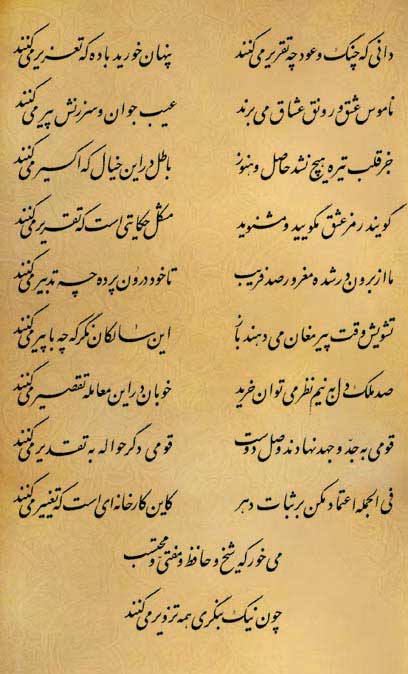 دانی که چنگ و عود چه تقریر می‌کنند پنهان خورید باده که تعزیر می‌کنند
ناموس عشق و رونق عشاق می‌برند عیب جوان و سرزنش پیر می‌کنند
جز قلب تیره هیچ نشد حاصل و هنوز باطل در این خیال که اکسیر می‌کنند
گویند رمز عشق مگویید و مشنوید مشکل حکایتی است که تقریر می‌کنند
ما از برون در شده مغرور صد فریب تا خود درون پرده چه تدبیر می‌کنند
تشویش وقت پیر مغان می‌دهند باز این سالکان نگر که چه با پیر می‌کنند
صد ملک دل به نیم نظر می‌توان خرید خوبان در این معامله تقصیر می‌کنند
قومی به جد و جهد نهادند وصل دوست قومی دگر حواله به تقدیر می‌کنند
فی الجمله اعتماد مکن بر ثبات دهر کاین کارخانه‌ای است که تغییر می‌کنند
می خور که شیخ و حافظ و مفتی و محتسب
چون نیک بنگری همه تزویر می‌کنند